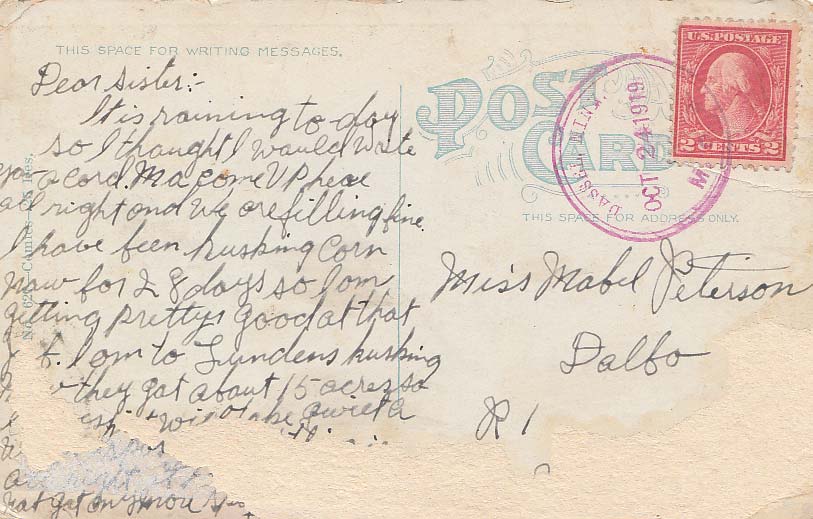 THIS SPACE FOR WRITING MESSAGES.
Dear sister:-
It is raining to-day
so I thought I would write
you a card. Ma come UP here
all right and we are filling fine.
I have been husking corn
now for 28 days so I am
getting prettys good at that
I am to Lundens husking
they got about 15 acrez so
all right
hat got any more
POST CARD
DASSEL MINN.
OCT 24 1919
M
U.S. POSTAGE
2 CENTS 2
THIS SPACE FOR ADDRESS ONLY.
Miss Mabel Peterson
Dalbo
R 1